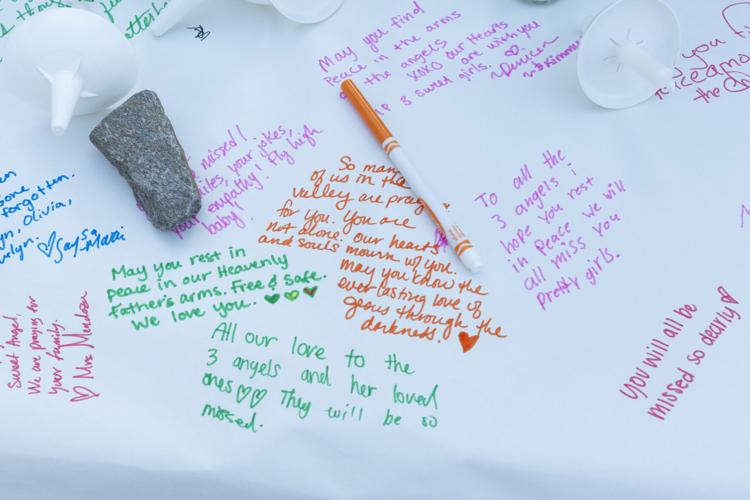 May you find
Peace in the arms
the angels
XOXO our Hearts
are with you
3 sweet girls. ♡
missed!
your jokes,
your empathy! Fly high
baby.
forgotten.
Olivia,
So many
of us in the
valley are
for you. You are
not alone. our hearts
and souls mourn w/ you.
may you know the
everlasting love of
Jesus through the
darkness. ♥
To all the
3 angels i
hope you rest
in Peace we will
all miss you
pretty girls.
May you rest in
peace in our Heavenly
Father's arms. Free & Safe.
We love you. ♥♥♥
All our love to the
3 angels and her loved
ones ♡♡ They will be so
missed.
Sweet Angel,
We are praying for
your family.
♡ Mrs Mendoza
you will all be
missed so dearly ♡